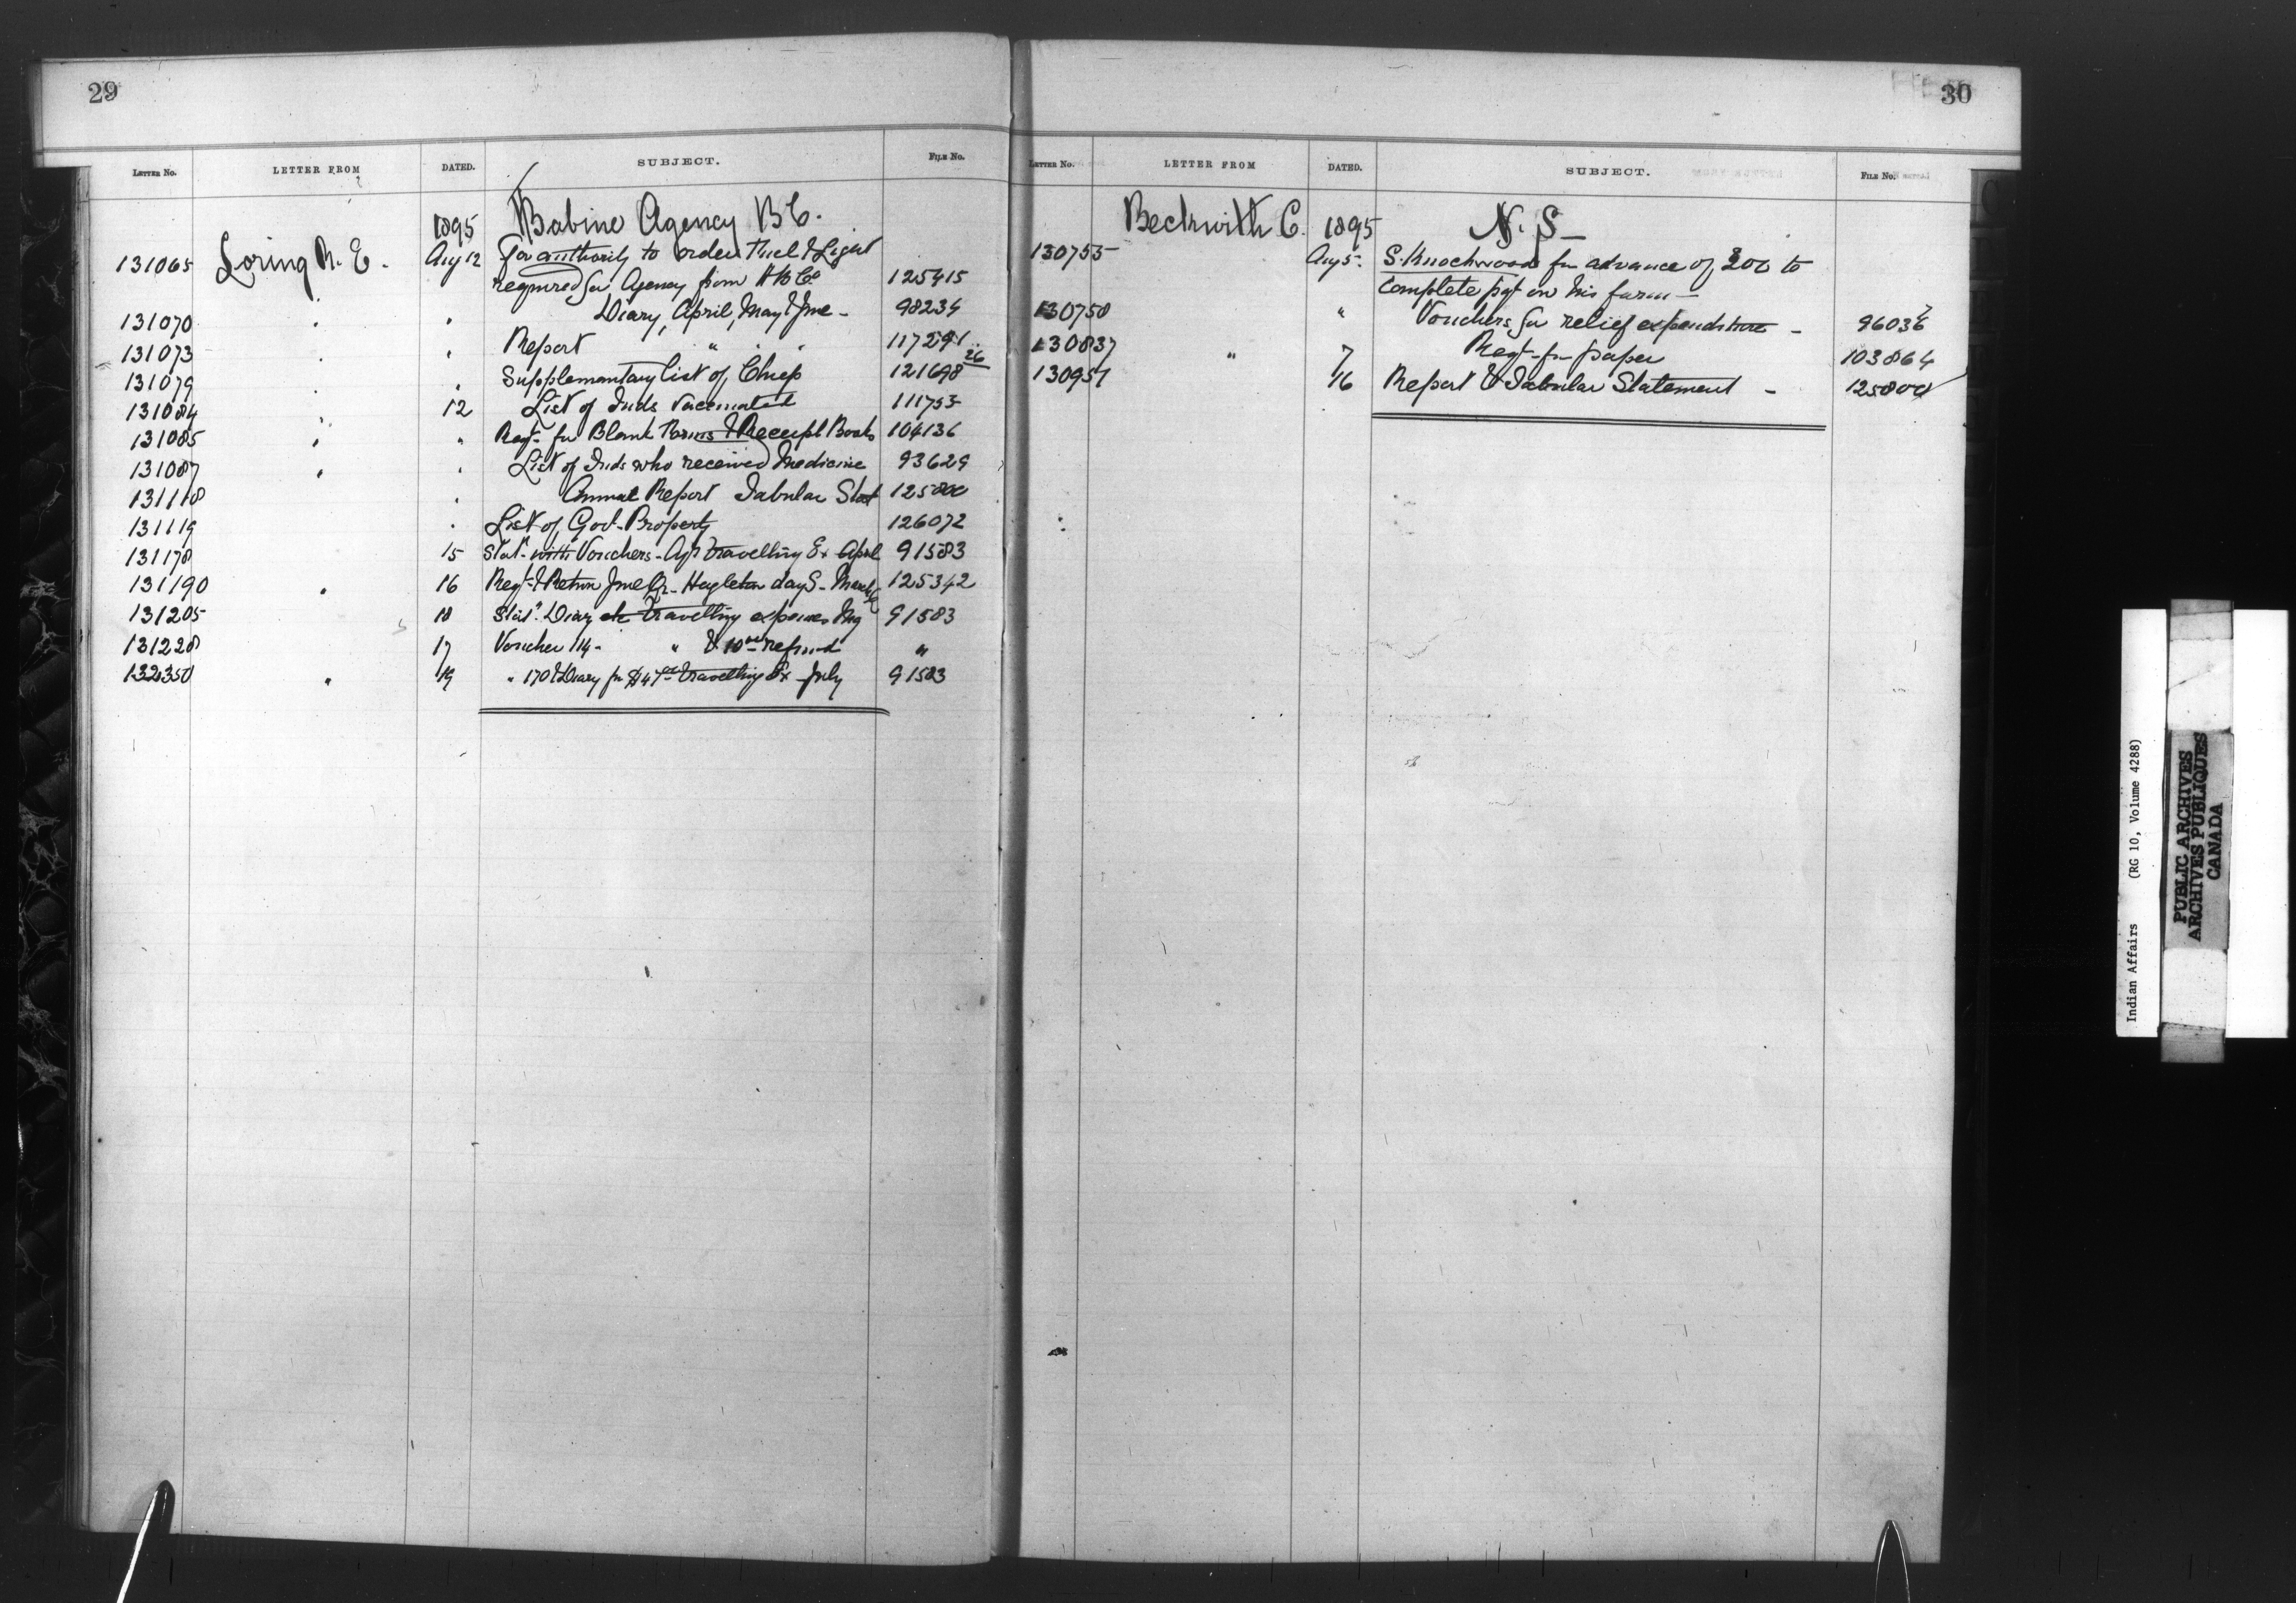 29
LETTER No. LETTER FROM DATED. SUBJECT. FILE No.
1895 Babine Agency B C.
131065 Loring R. E. Aug 12 For authority to order Fuel & Light
required for Agency from H B Co 125415
131070 " " Diary, April, May & June - 98234
131073 " " Report " " " 117291
131079 " " Supplementary list of Chiefs 121698 26
131084 " 12 List of Inds Vaccinated 111753
131085 " " Reqt- for Blank Forms & Receipt Books 104136
131087 " " List of Inds who received Medicine 93629
131118 " Annual Report Tabular Stat 125800
131119 " List of Govt- Property 126072
131178 15 Stat- with Vouchers - Agt travelling Ex April 91583
131190 " 16 Reqt- & Return June Qr- Hagleton day S- March 125342
131205 18 Stat- Diary etc travelling expenses May 91583
131228 17 Voucher 114 - " & 10 refund "
132350 " 19 " 170 & Diary for travelling Ex July 91583
30
LETTER No. LETTER FROM DATED. SUBJECT. FILE No.
Beckwith C. 1895 N. S -
130755 Aug 5 - S. Knockwood for advance of 200 to
complete pay on his farm -
130750 " Vouchers for relief expenditure - 96036
130837 " 7 Reqt- for paper 103864
130957 16 Report & Tabular Statement - 125800
Indian Affairs (RG 10, Volume 4288)
PUBLIC ARCHIVES
ARCHIVES PUBLIQUES
CANADA